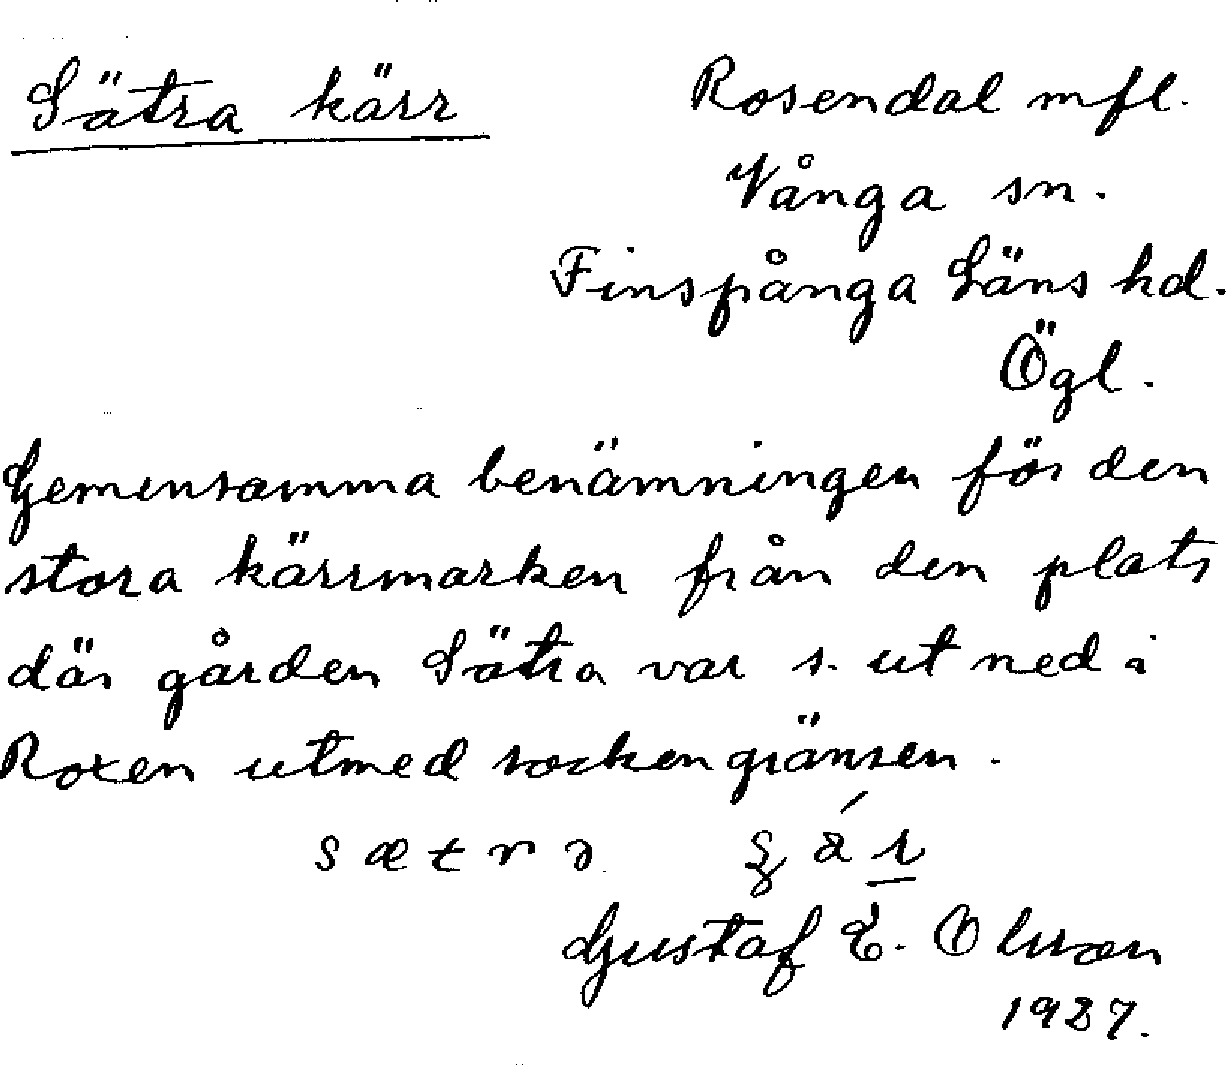 Sätra kärr
Rosendal mfl.
Vånga sn.
Finspånga Läns hd.
Ögl.
Gemensamma benämningen för den
stora kärrmarken från den plats
där gården Sätra var s. ut ned i
Roxen utmed sockengränsen.
sætrə
Gustaf E. Olsson
1927.